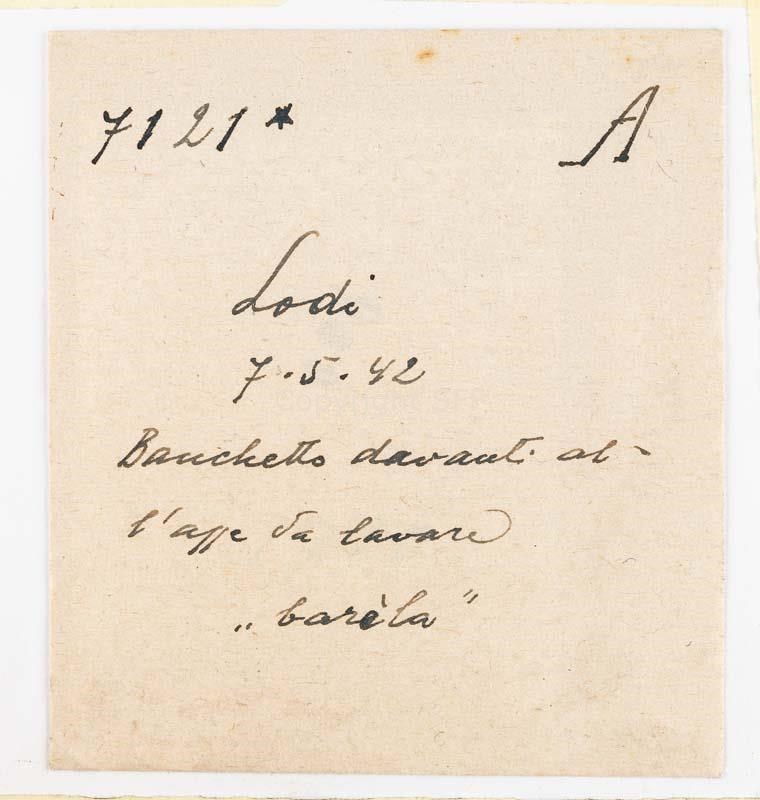 7121* A
Lodi
7.5.42
Banchetto davanti al-
l'asse da lavare
„barèla"